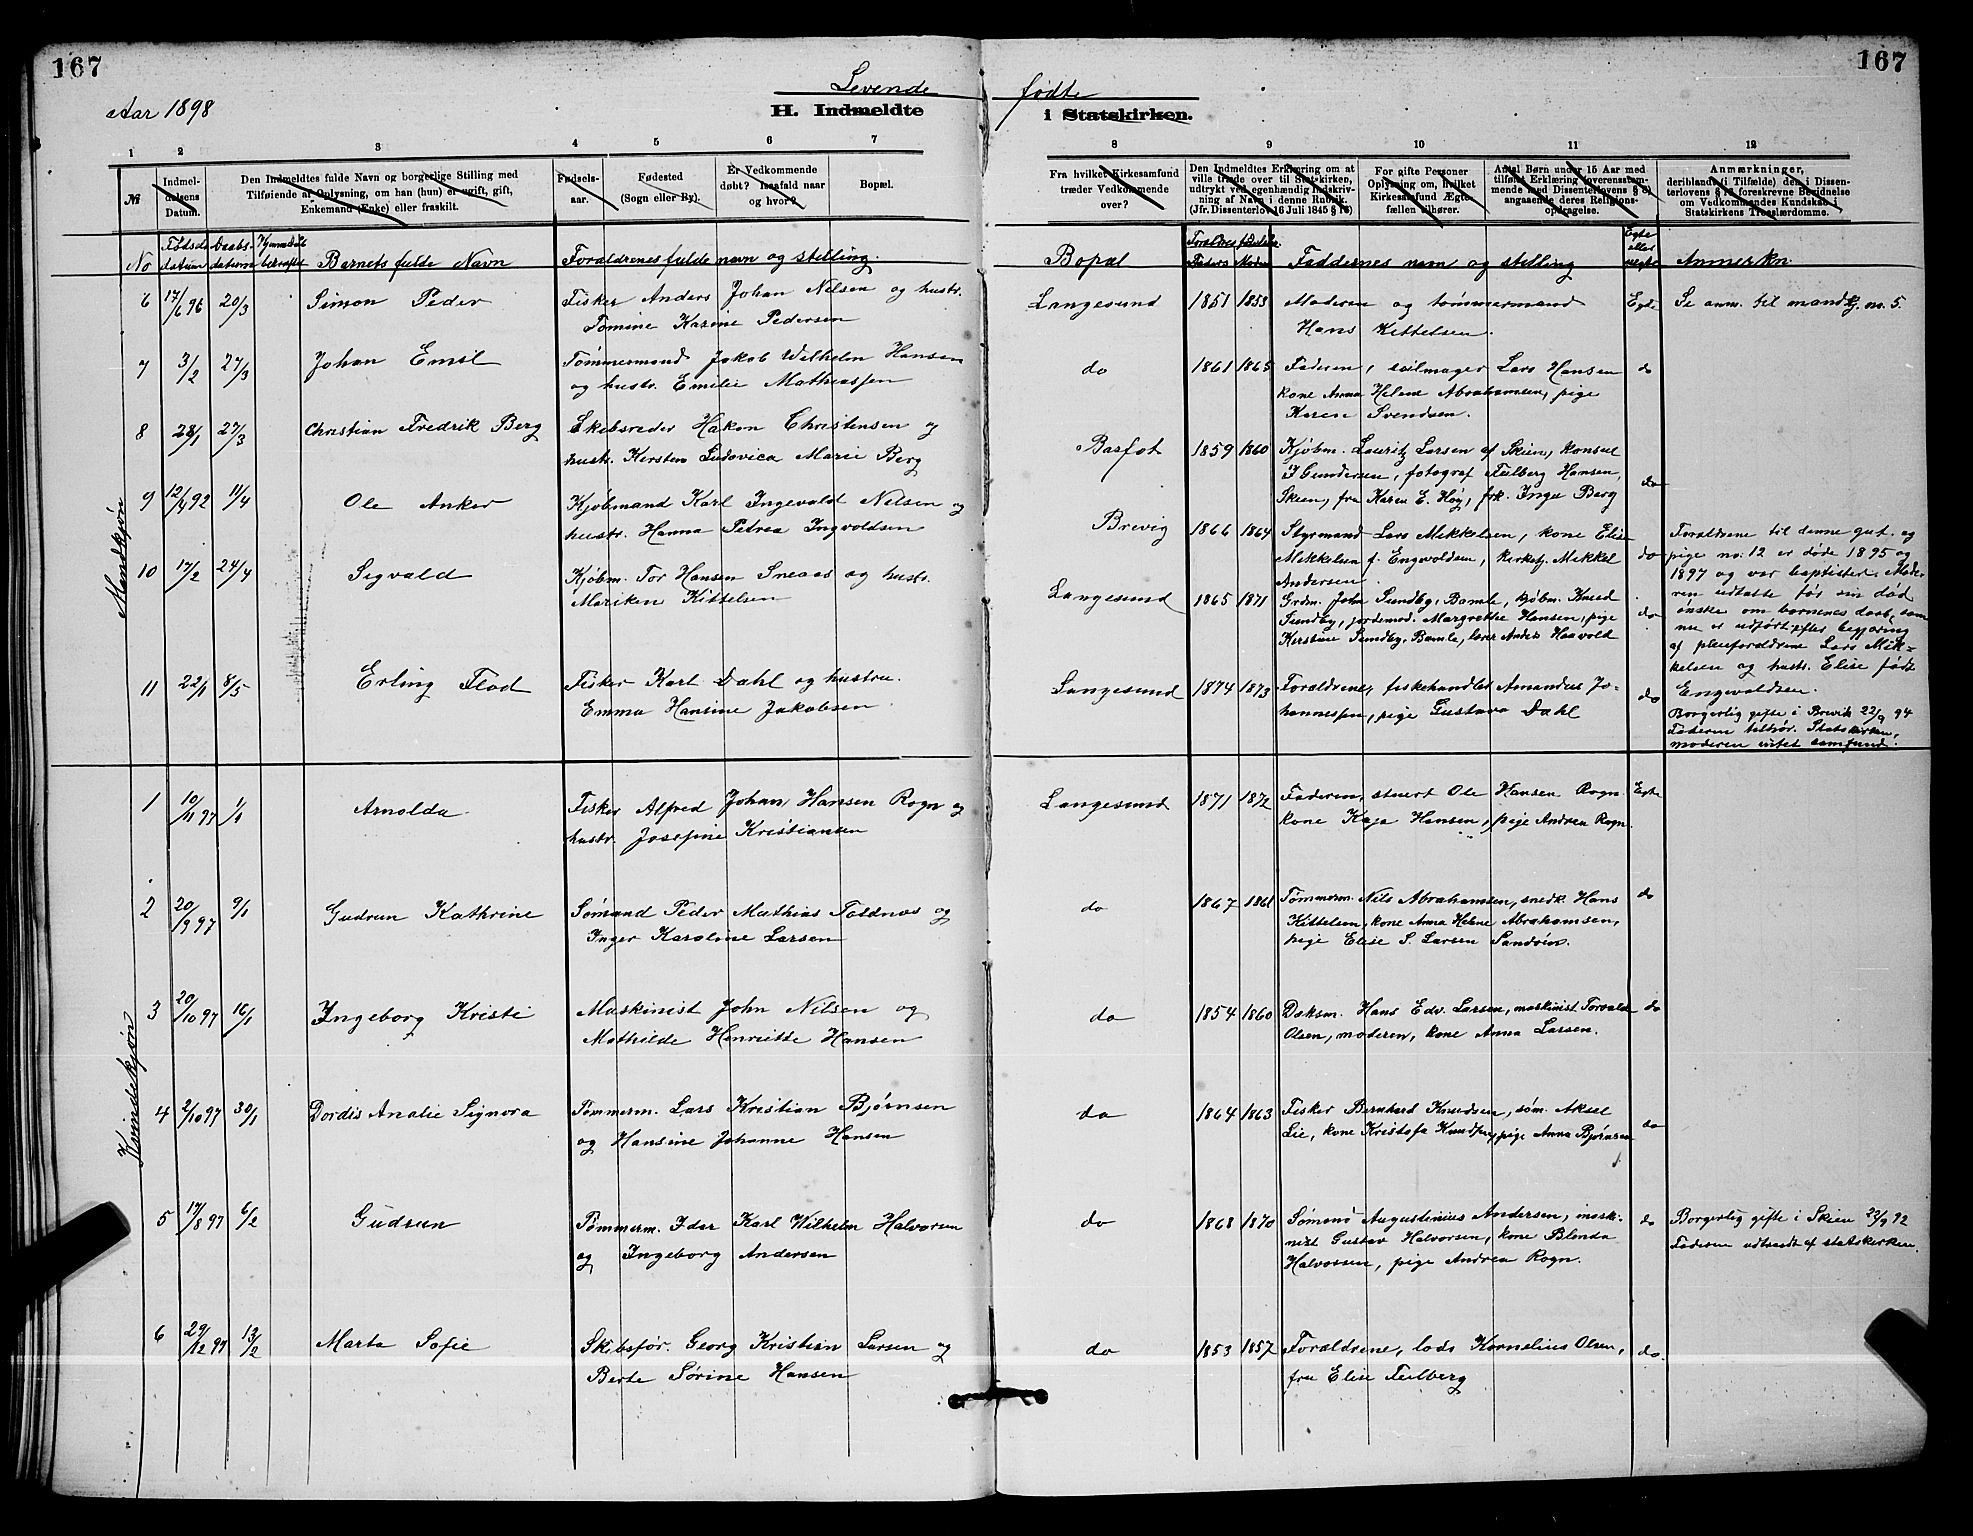 167
167
Aar 1898
Levende fødte
H. Indmeldte i Statskirken.
1 2 3 4 5 6 7 8 9 10 11 12
№
Indmeldelsens Datum.
Den Indmeldtes fulde Navn og borgerlige Stilling med
Tilføiende af Oplysning, om han (hun) er ugift, gift,
Enkemand (Enke) eller fraskilt.
Fødselsaar.
Fødested
(Sogn eller By).
Er Vedkommende
døbt? Isaafald naar
og hvor?
Bopæl.
Fra hvilket Kirkesamfund
træder Vedkommende
over?
Den Indmeldtes Erklæring om at
ville træde over til Statskirken,
udtrykt ved egenhændig Indskrivning
af Navn i denne Rubrik.
(Jfr. Dissenterlov 16 Juli 1845 § 18)
For gifte Personer
Oplysning om, hvilket
Kirkesamfund Ægtefællen
tilhører.
Antal Børn under 15 Aar med
tilføiet Erklæring (overensstemmende
med Dissenterlovens § 8)
angaaende deres Religionsopdragelse.
Anmærkninger,
deribland (i Tilfælde) den i Dissenterlovens
§ 18 foreskrevne Bevidnelse
om Vedkommendes Kundskab i
Statskirkens Troeslærdomme.
No Fødselsdatum Daabsdatum Barnets fulde Navn Forældrenes fulde navn og stilling. Bopæl Forældres fødselsaar Faders Moders Faddernes navn og stilling Egte eller uegte Anmerkn.
Mandkjøn
6 17/6 96 20/3 Simon Peder Fisker Anders Johan Nilsen og hustr. Langesund 1851 1853 Moderen og tømmermand Egte Se anm. til mandkj. no. 5.
Tomine Karine Pedersen Hans Kittelsen.
7 3/2 27/3 Johan Emil Tømmermand Jakob Wilhelm Hansen do 1861 1865 Faderen, seilmager Lars Hansen do
og hustr. Emilie Mathiassen kone Anna Helene Abrahamsen, pige
Karen Svendsen.
8 28/1 27/3 Christian Fredrik Berg Skibsreder Hakon Christensen og Basfot 1859 1860 Kjøbm. Lauritz Larsen af Skien, konsul
hustr. Kirsten Ludovica Marie Berg I Gundersen, fotograf Feilberg Hansen, do
Skien, fru Karen E. Høy, frk. Inga Berg
9 12/4 92 11/4 Ole Anker Kjøbmand Karl Ingevald Nilsen og Brevig 1866 1864 Styrmand Lars Mikkelsen, kone Elise
hustr. Hanna Petrea Ingvoldsen Mikkelsen f. Engvoldsen, kirketj. Mikkel do
Andersen.
Forældrene til denne gut og
pige no. 12 er døde 1895 og
1897 og var baptister. Moderen
udtalte før sin død
ønske om børnenes daab, som
nu er udført efter begjæring
af pleieforældrene Lars Mikkelsen
og hustr. Elise født
Engevaldsen.
10 17/2 24/4 Sigvald Kjøbm. Tor Hansen Sneaas og hustr. Langesund 1865 1871 Grdm. John Sundby, Bamle, kjøbm. Knud
Mariken Kittelsen Sundby, jordemod. Margrethe Hansen, pige do
Kirstine Sundby, Bamle, lærer Anders Haavold
11 22/1 8/5 Erling Flod Fisker Karl Dahl og hustru Langesund 1874 1873 Forældrene, fiskehandler Amandus Johannessen, do
Emma Hansine Jakobsen pige Gustava Dahl
Borgerlig gifte i Brevik 22/9 94
Faderen tilhør. Statskirken,
moderen intet samfund.
Kvindekjøn
1 10/11 97 1/1 Arnolda Fisker Alfred Johan Hansen Rogn og Langesund 1871 1872 Faderen, stuert Ole Hansen Rogn Egte
hustr. Josefine Kristiansen kone Kaja Hansen, pige Andrea Rogn.
2 20/9 97 9/1 Gudrun Kathrine Sømand Peder Mathias Toldnæs og do 1867 1861 Tømmerm. Nils Abrahamsen, snedk. Hans do
Inger Karoline Larsen Kittelsen, kone Anna Helene Abrahamsen,
pige Elise S. Larsen Sandøen.
3 20/10 97 16/1 Ingeborg Kristi Maskinist John Nilsen og do 1854 1860 Doksm. Hans Edv. Larsen, maskinist Torvald do
Mathilde Henriette Hansen Olsen, moderen, kone Anna Larsen.
4 2/10 97 30/1 Dordis Analie Signora Tømmerm. Lars Kristian Bjørnsen do 1864 1863 Fisker Bernhard Knudsen, søm. Aksel
og Hansine Johanne Hansen Lie, kone Kristofa Knudsen, pige Anna Bjørnsen do
5 17/8 97 6/2 Gudrun Tømmerm. Idar Karl Wilhelm Halvorsen do 1868 1870 Sømand Augustinius Andersen, maskinist do Borgerlig gifte i Skien 22/9 92
og Ingeborg Andersen Gustav Halvorsen, kone Blenda Faderen udtraadt af statskirken.
Halvorsen, pige Andrea Rogn.
6 29/12 97 13/2 Marta Sofie Skibsfør. Georg Kristian Larsen og do 1853 1857 Forældrene, lods Kornelius Olsen, do.
Berte Sørine Hansen fru Elise Feilberg